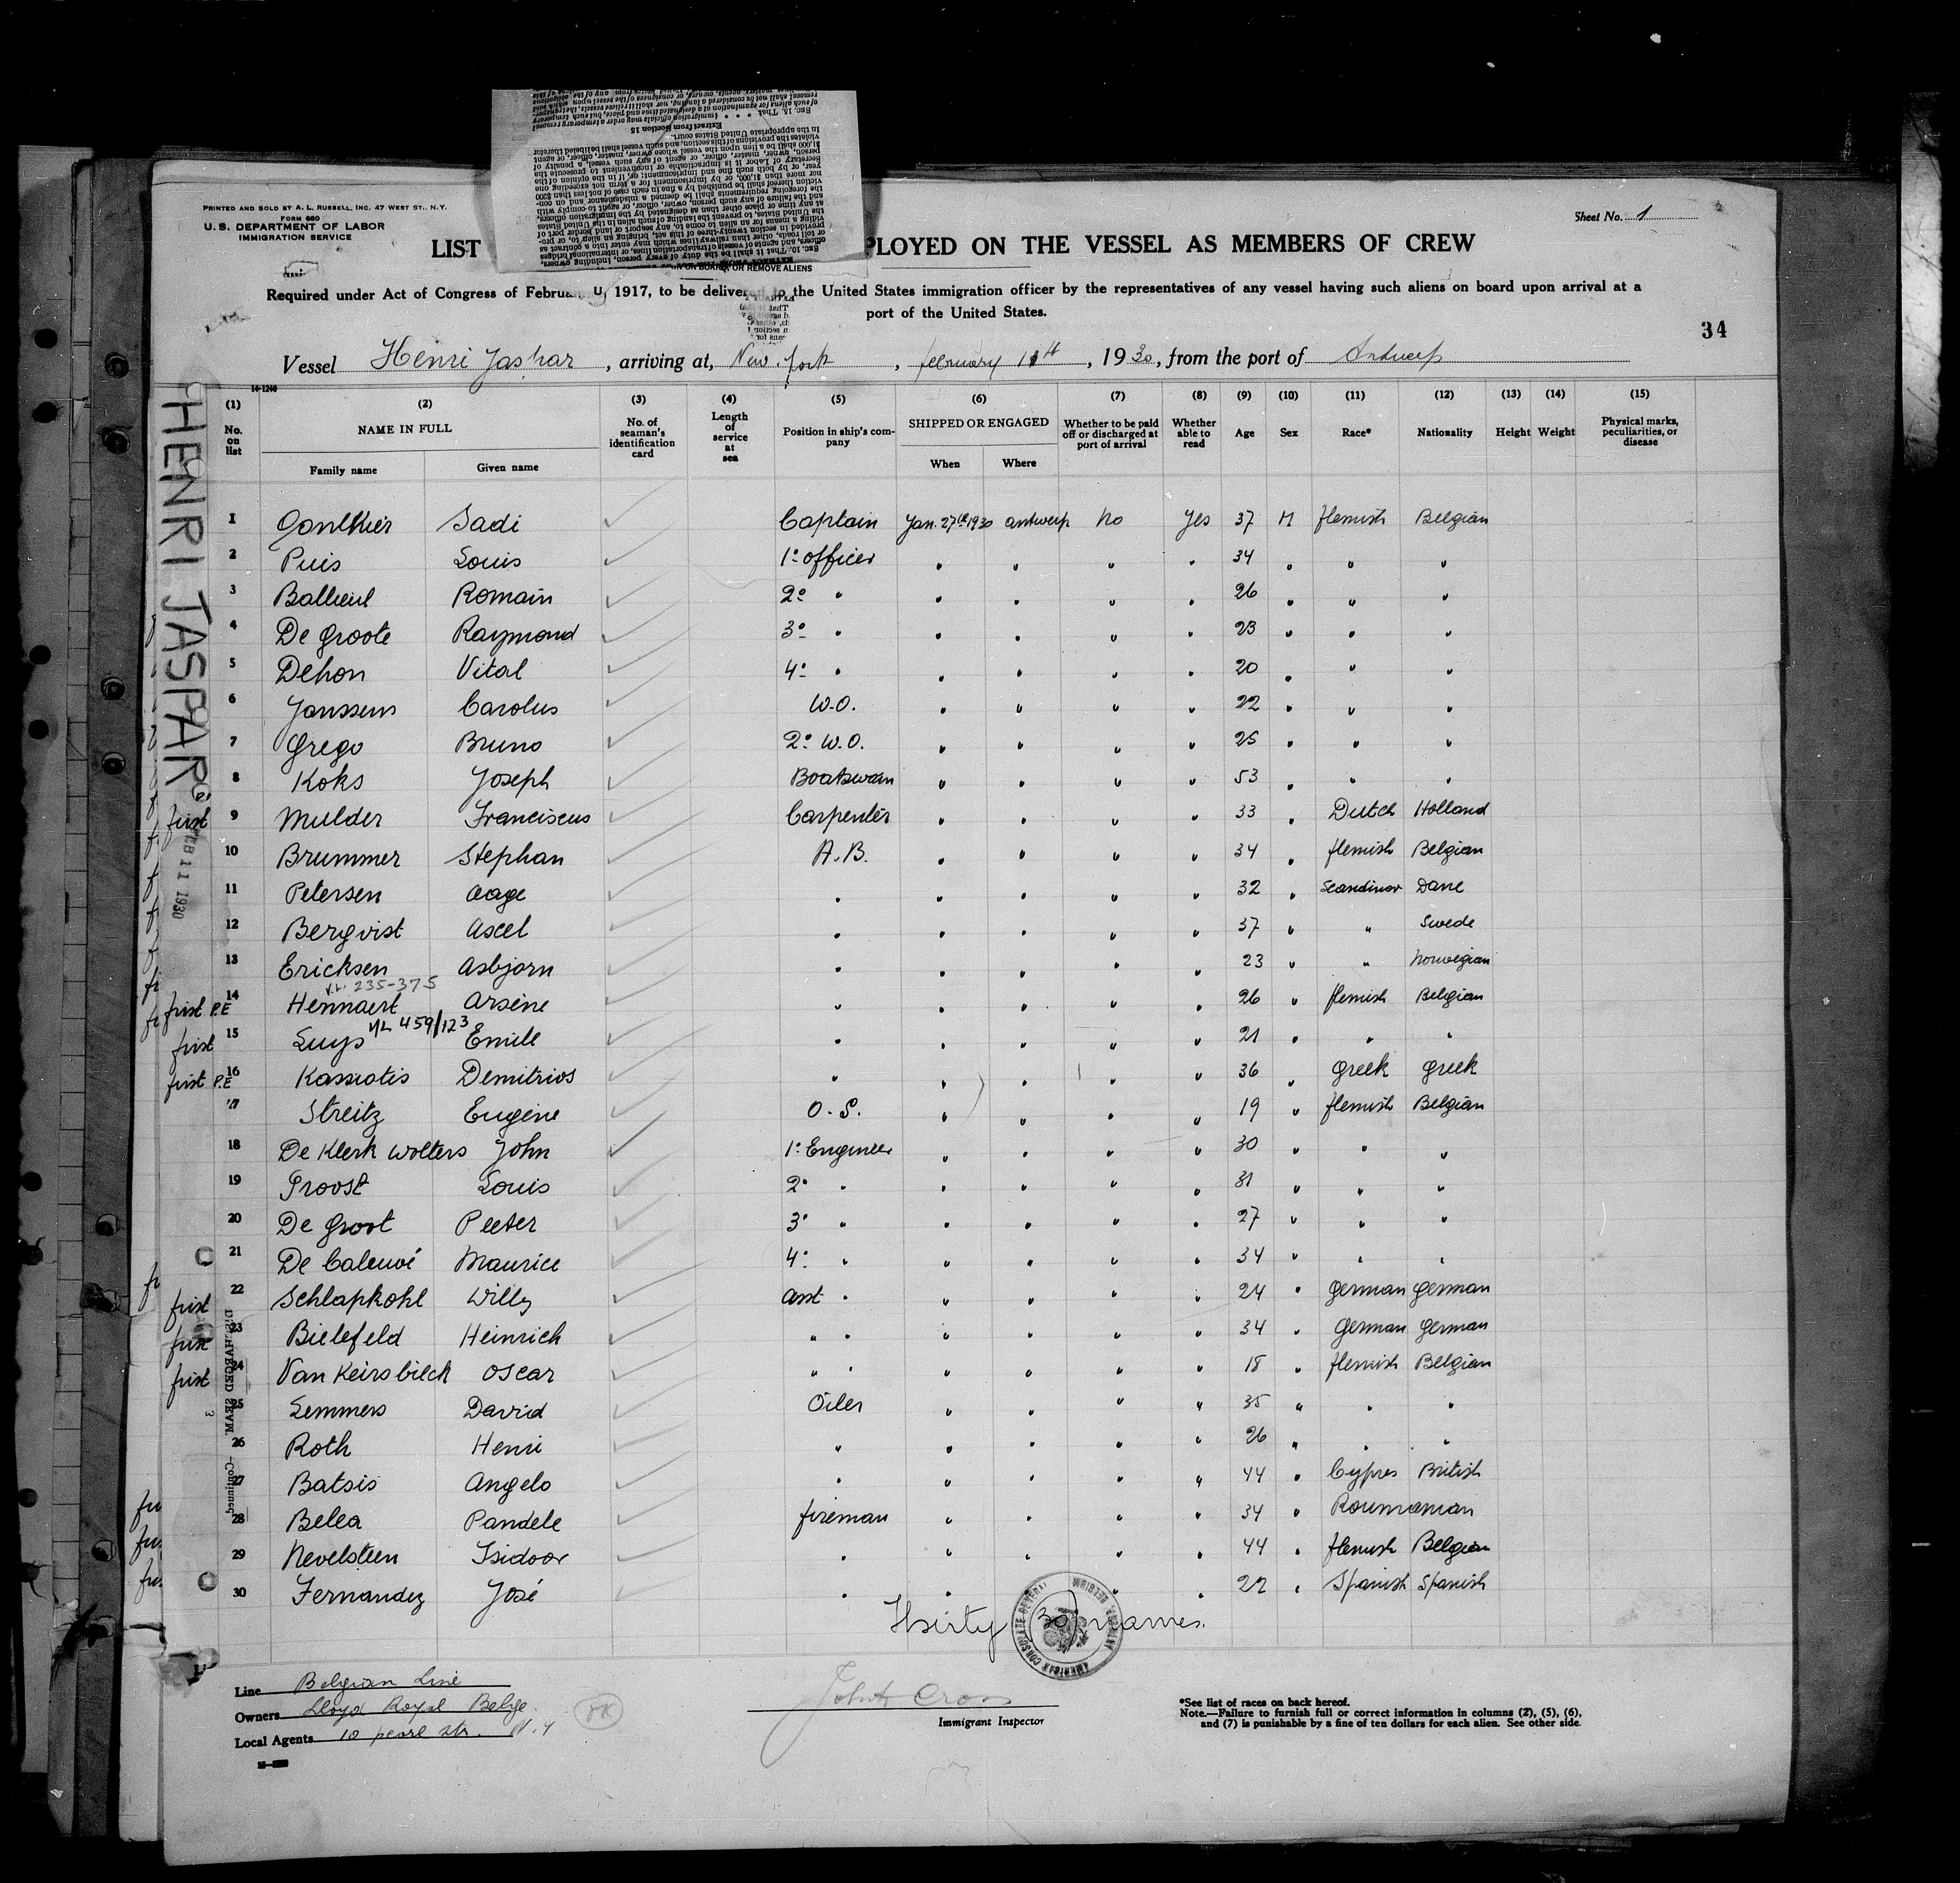 PRINTED AND SOLD BY A. L. RUSSELL, INC. 47 WEST ST., N.Y.
FORM 680
U. S. DEPARTMENT OF LABOR
IMMIGRATION SERVICE
Sheet No. 1
LIST PLOYED ON THE VESSEL AS MEMBERS OF CREW
Required under Act of Congress of Februa 1917, to be delivered to the United States immigration officer by the representatives of any vessel having such aliens on board upon arrival at a
port of the United States.
34
Vessel Henri Jaspar, arriving at, New York, february 11th, 1930, from the port of Antwerp
14-1240
(1) No. on list (2) NAME IN FULL Family name Given name (3) No. of seaman's identification card (4) Length of service at sea (5) Position in ship's company (6) SHIPPED OR ENGAGED When Where (7) Whether to be paid off or discharged at port of arrival (8) Whether able to read (9) Age (10) Sex (11) Race* (12) Nationality (13) Height (14) Weight (15) Physical marks, peculiarities, or disease
HENRI JASPAR
FEB 11 1930
1 Gaulthier Sadi Captain Jan. 27th 1930 antwerp No Yes 37 M flemish Belgian
2 Puis Louis 1° officer " " " " 34 " " "
3 Ballieul Romain 2° " " " " " 26 " " "
4 De Groote Raymond 3° " " " " " 23 " " "
5 Dehon Vital 4° " " " " " 20 " " "
6 Janssens Carolus W.O. " " " " 22 " " "
7 Grego Bruno 2° W.O. " " " " 25 " " "
8 Koks Joseph Boatswain " " " " 53 " " "
first 9 Mulder Franciscus Carpenter " " " " 33 " Dutch Holland
10 Brummer Stephan A.B. " " " " 34 " flemish Belgian
11 Petersen Aage " " " " " 32 " Scandinav Dane
12 Bergvist Axel " " " " " 37 " " Swede
13 Ericksen Asbjorn " " " " " 23 " " Norwegian
235-375
first P.E 14 Hennaert Arsène " " " " " 26 " flemish Belgian
459/123
first 15 Luys Emile " " " " " 21 " " "
first P.E 16 Kassiotis Demitrios " " " " " 36 " Greek Greek
17 Streitz Eugène O.S. " " " " 19 " flemish Belgian
18 De Klerk Wolters John 1° Engineer " " " " 30 " " "
19 Proost Louis 2° " " " " " 31 " " "
20 De Groot Peeter 3° " " " " " 27 " " "
21 De Caluwé Maurice 4° " " " " " 34 " " "
first 22 Schlapkohl Willy asst " " " " " 24 " German German
first 23 Bielefeld Heinrich " " " " " " 34 " German German
first 24 Van Keirsbilck Oscar " " " " " " 18 " flemish Belgian
25 Lemmens David Oiler " " " " 35 " " "
26 Roth Henri " " " " " 26 " " "
27 Batsis Angelo " " " " " 44 " Cypres British
28 Belea Pandele fireman " " " " 34 " Roumanian
29 Nevelsteen Isidoor " " " " " 44 " flemish Belgian
30 Fernandez José " " " " " 22 " Spanish Spanish
Thirty (30) names.
AMERICAN CONSULATE GENERAL ANTWERP, BELGIUM
Line Belgian Line
Owners Lloyd Royal Belge
Local Agents 10 pearl str. N.Y
John Cross
Immigrant Inspector
*See list of races on back hereof.
Note.—Failure to furnish full or correct information in columns (2), (5), (6),
and (7) is punishable by a fine of ten dollars for each alien. See other side.